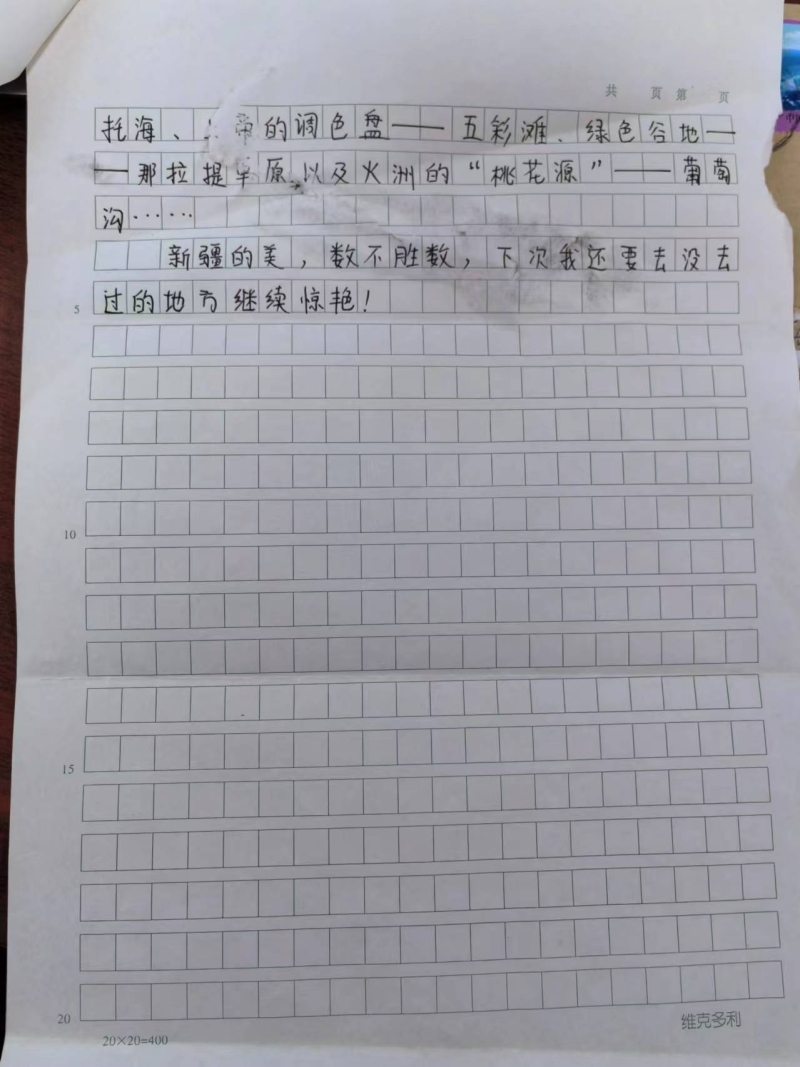 共 页 第 页
托海、 帝的调色盘——五彩滩、绿色谷地—
—那拉提草原以及火洲的“桃花源”——葡萄
沟……
新疆的美，数不胜数，下次我还要去没去
过的地方继续惊艳！
5
10
15
20
20×20=400
维克多利